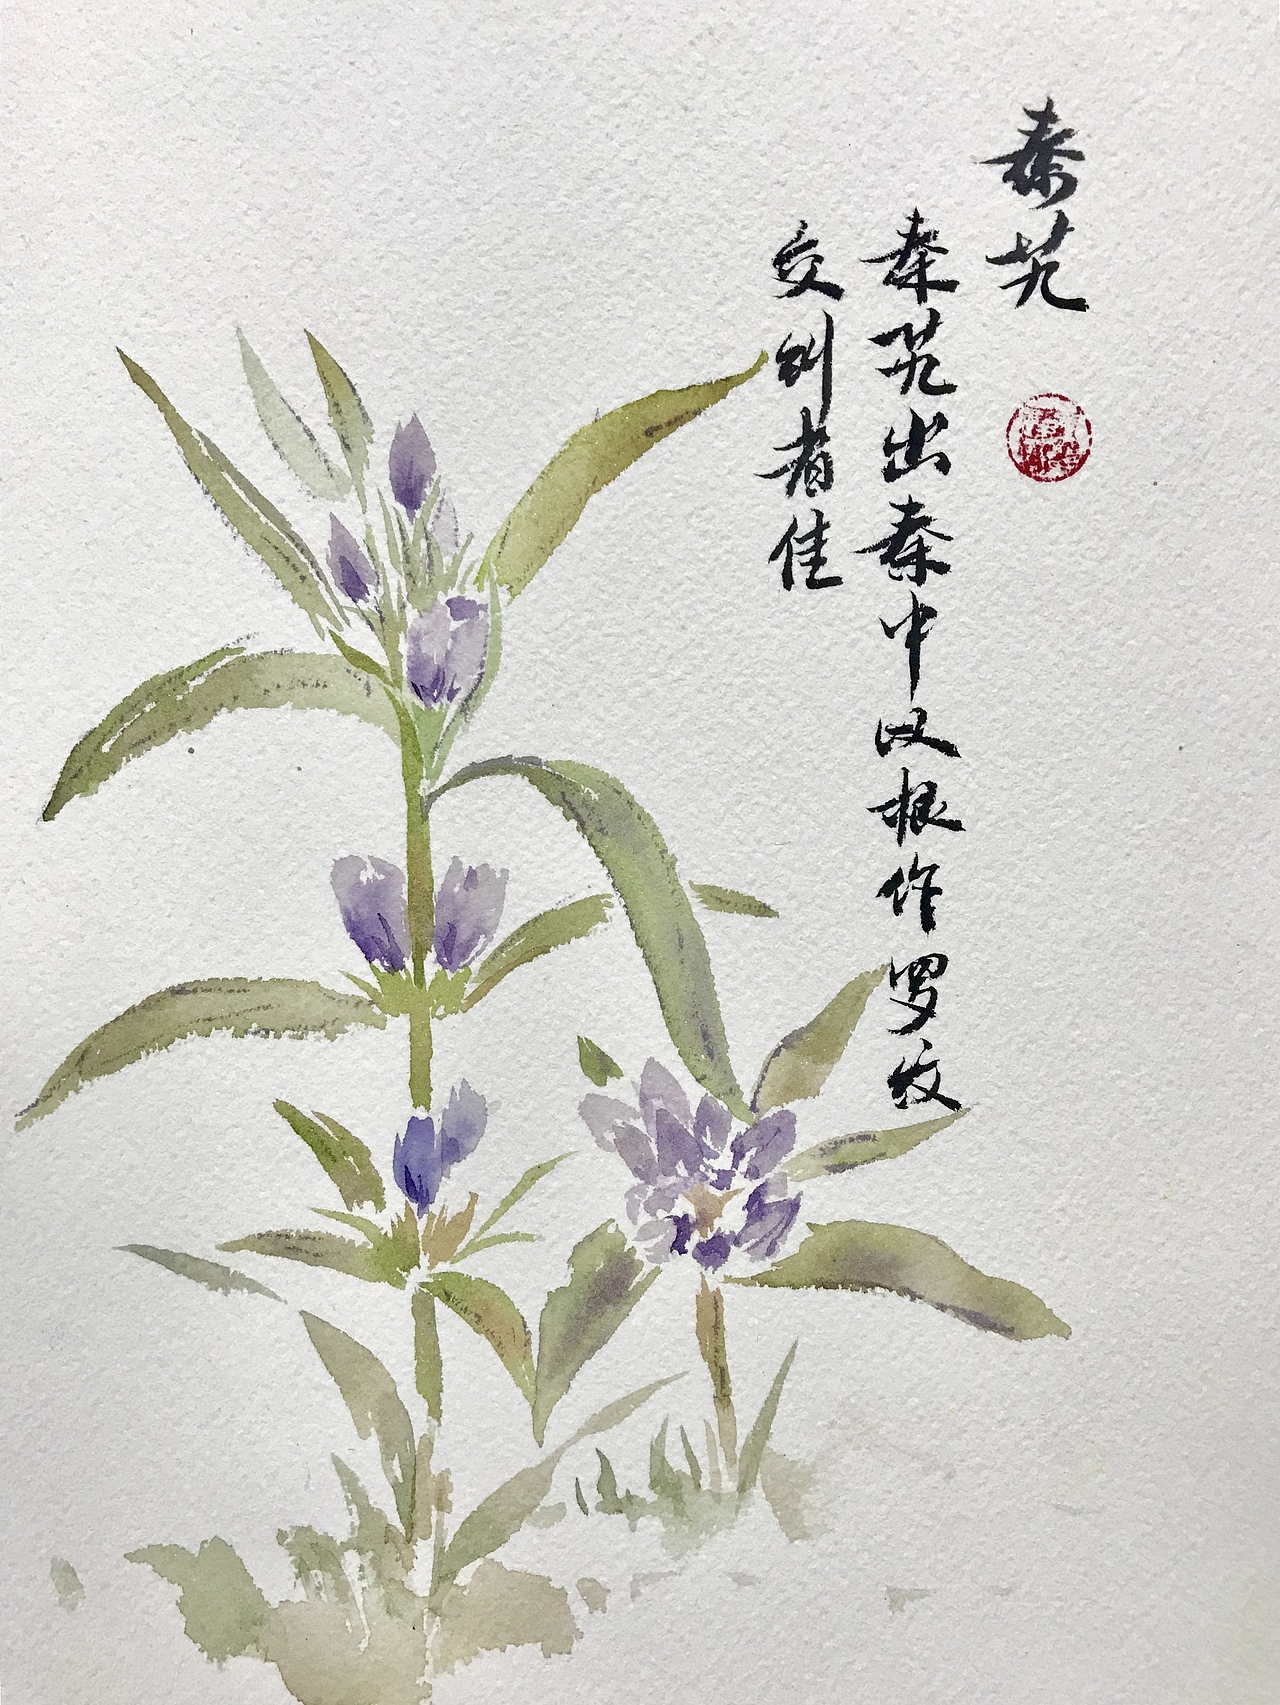 秦艽
秦艽出秦中以根作罗纹
交纠者佳